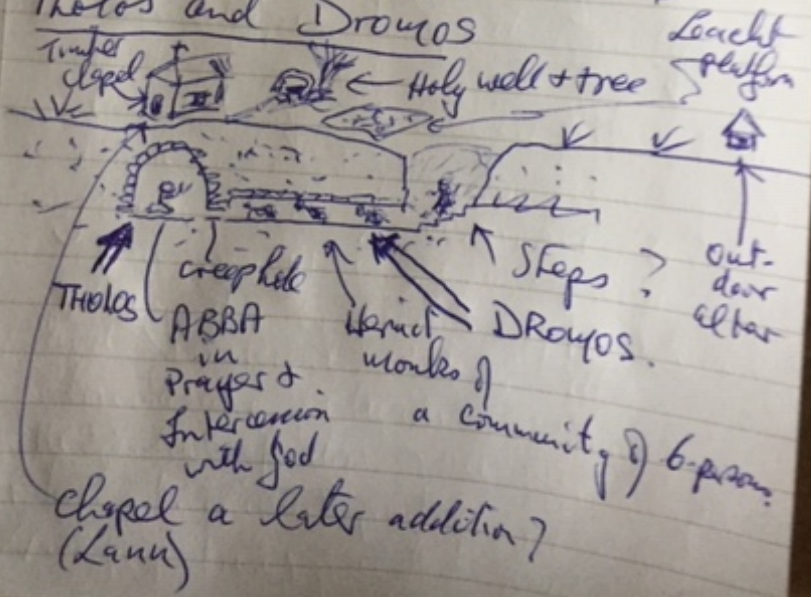 Tholos and Dromos
Timber
chapel
Holy well + tree
Leacht
platform
THOLOS
creephole
ABBA
in
Prayer &
Intercession
with God
Hermit
monks of
a community of 6 persons?
Steps?
DROMOS.
Out-
door
altar
Chapel a later addition?
(Lann)